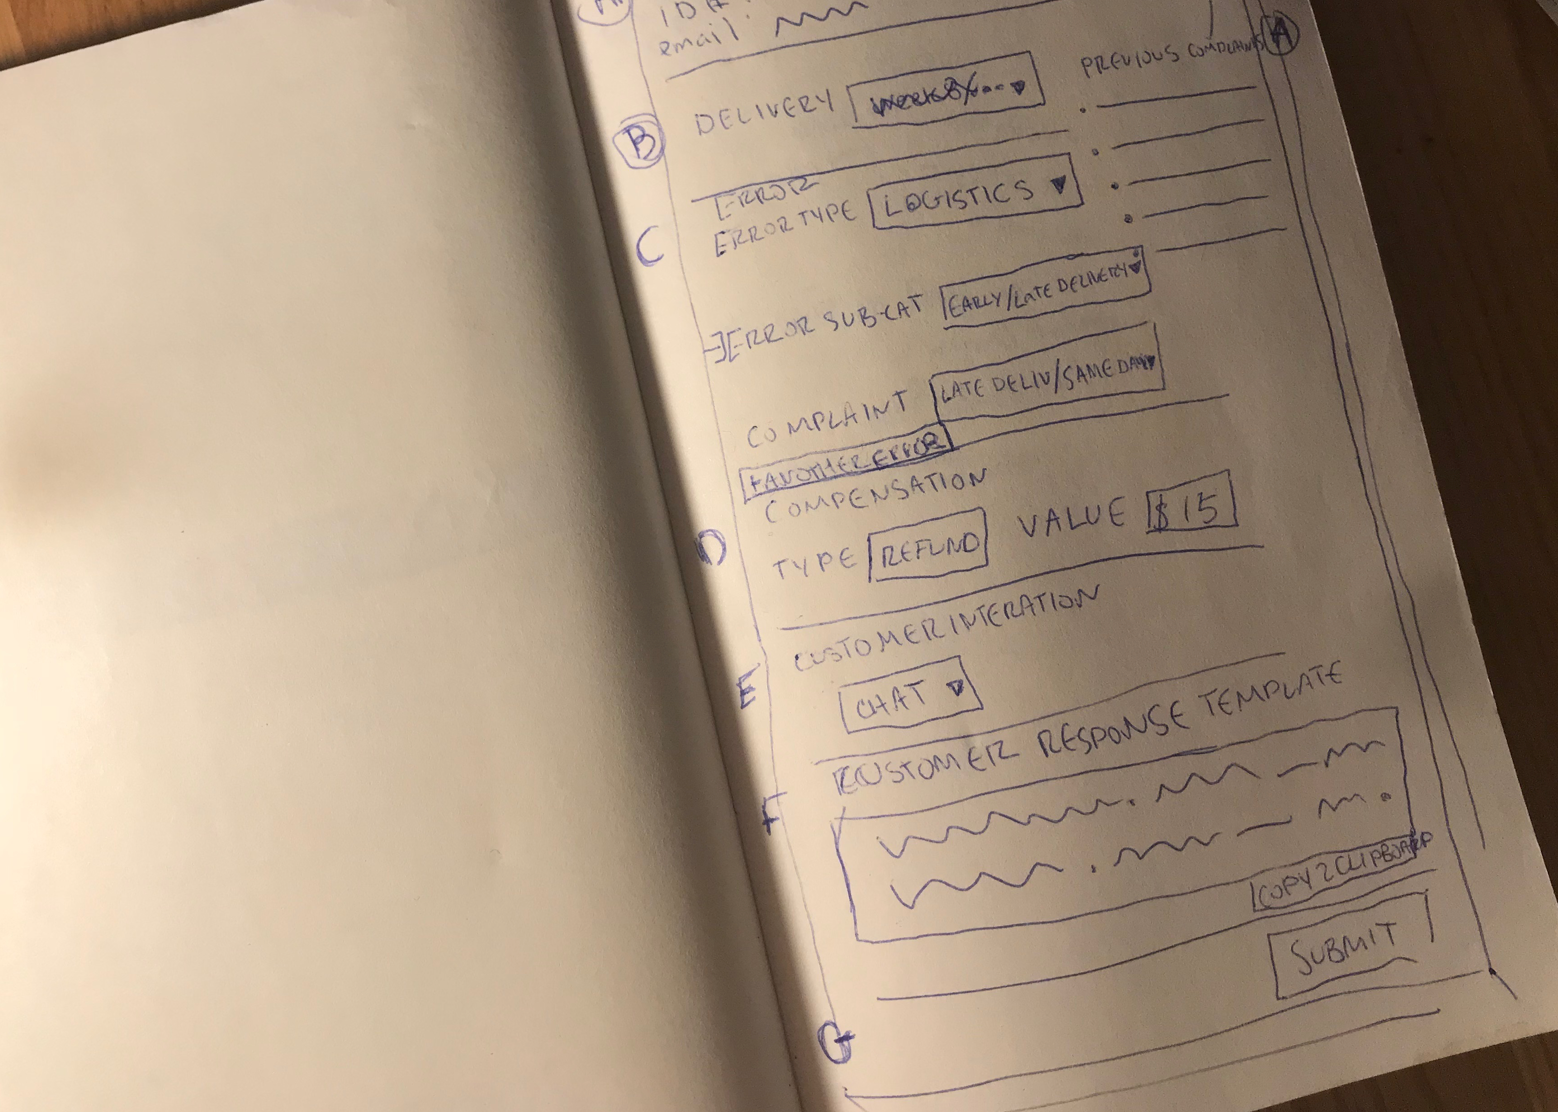 ID #
email:
A
PREVIOUS COMPLAINTS
B
DELIVERY
ERROR
C
ERROR TYPE LOGISTICS
ERROR SUB-CAT EARLY/LATE DELIVERY
COMPLAINT LATE DELIV/SAME DAY
+ANOTHER ERROR
COMPENSATION
D
TYPE REFUND VALUE $15
CUSTOMER INTERATION
E
CHAT
CUSTOMER RESPONSE TEMPLATE
F
COPY2CLIPBOARD
SUBMIT
G